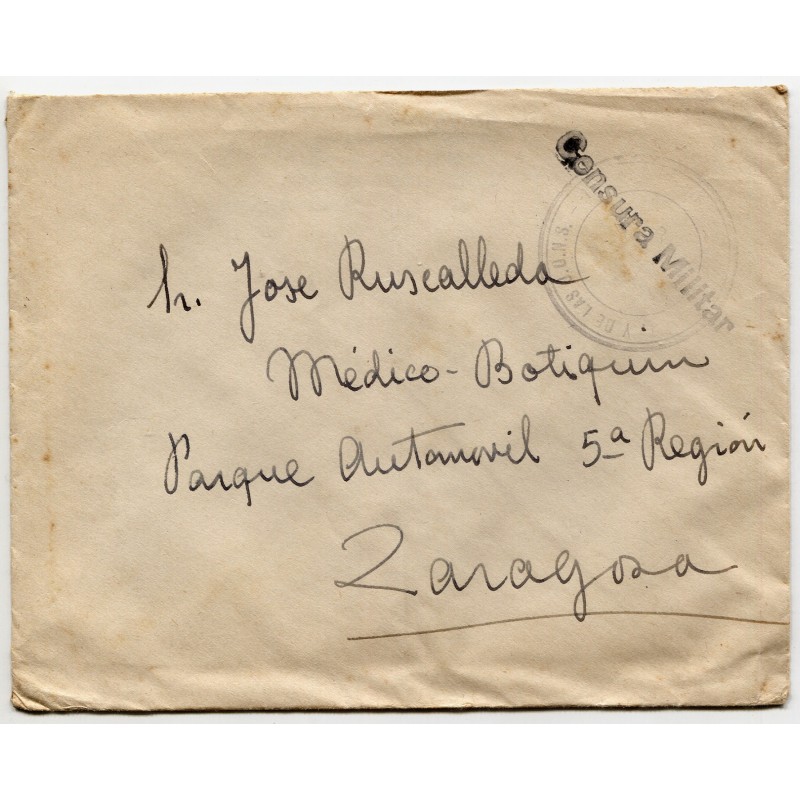 Censura Militar
Y DE LAS J.O.N.S.
Sr. Jose Ruscalleda
Médico - Botiquin
Parque Automovil 5ª Región
Zaragosa